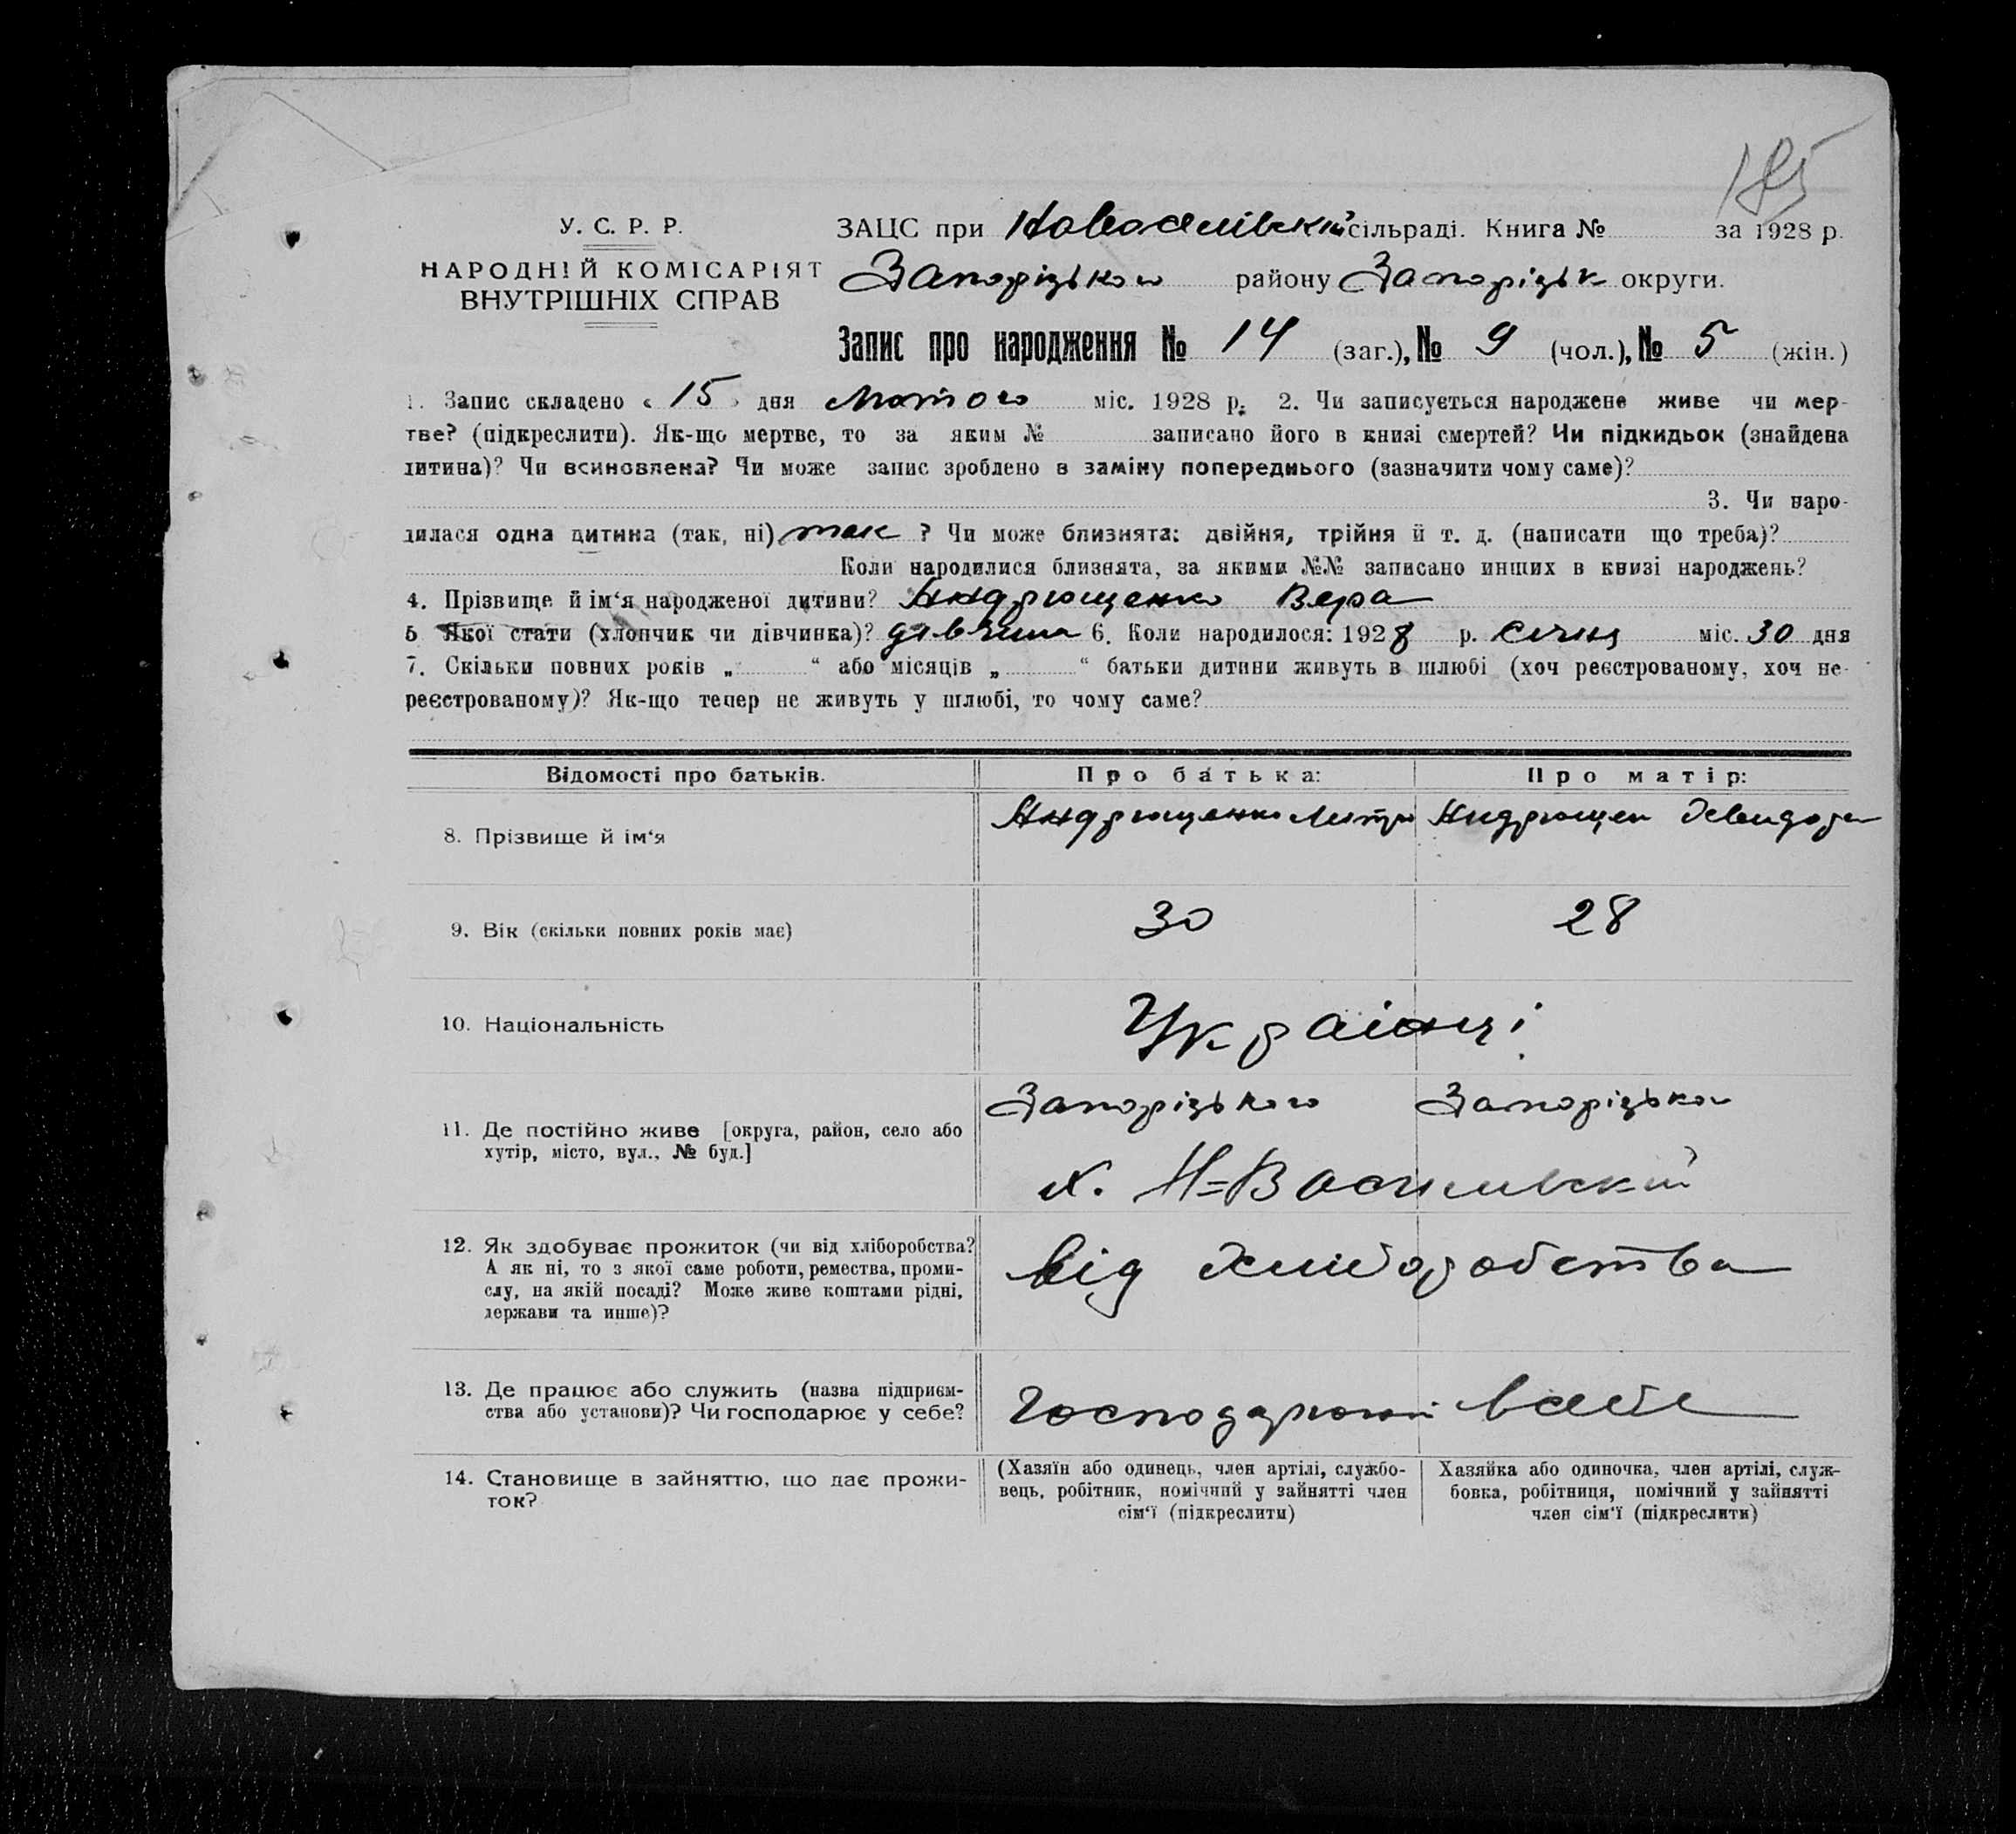 185
У. С. Р. Р.
НАРОДНІЙ КОМІСАРІЯТ
ВНУТРІШНІХ СПРАВ
ЗАЦС при сільраді. Книга № за 1928 р.
Запорізького району Запорізьк округи.
Запис про народження № 14 (заг.), № 9 (чол.), № 5 (жін.)
1. Запис складено « 15 » дня Лютого міс. 1928 р. 2. Чи записується народжене живе чи мер-
тве? (підкреслити). Як-що мертве, то за яким № записано його в книзі смертей? Чи підкидьок (знайдена
дитина)? Чи всиновлена? Чи може запис зроблено в заміну попереднього (зазначити чому саме)?
3. Чи наро-
дилася одна дитина (так, ні) так ? Чи може близнята: двійня, трійня й т. д. (написати що треба)?
Коли народилися близнята, за якими №№ записано инших в книзі народжень?
4. Прізвище й ім‘я народженої дитини? Андрющенко Вера
5 Якої стати (хлопчик чи дівчинка)? дівчина 6. Коли народилося: 1928 р. січня міс. 30 дня
7. Скільки повних років „ “ або місяців „ “ батьки дитини живуть в шлюбі (хоч реєстрованому, хоч не-
реєстрованому)? Як-що тепер не живуть у шлюбі, то чому саме?
Відомості про батьків. Про батька: Про матір:
8. Прізвище й ім‘я Андрющенко Андрющен
9. Вік (скільки повних років має) 30 28
10. Національність Українці
11. Де постійно живе [округа, район, село або
хутір, місто, вул., № буд.]
Запорізького Запорізьког
х. Н=Василівский
12. Як здобуває прожиток (чи від хліборобства?
А як ні, то з якої саме роботи, ремества, проми-
слу, на якій посаді? Може живе коштами рідні,
держави та инше)?
від хліборобства
13. Де працює або служить (назва підприєм-
ства або установи)? Чи господарює у себе?
Господарюют всебе
14. Становище в зайняттю, що дає прожи-
ток?
(Хазяїн або одинець, член артілі, службо-
вець, робітник, помічний у зайнятті член
сім‘ї (підкреслити)
Хазяйка або одиночка, член артілі, служ-
бовка, робітниця, помічний у зайнятті
член сім‘ї (підкреслити)